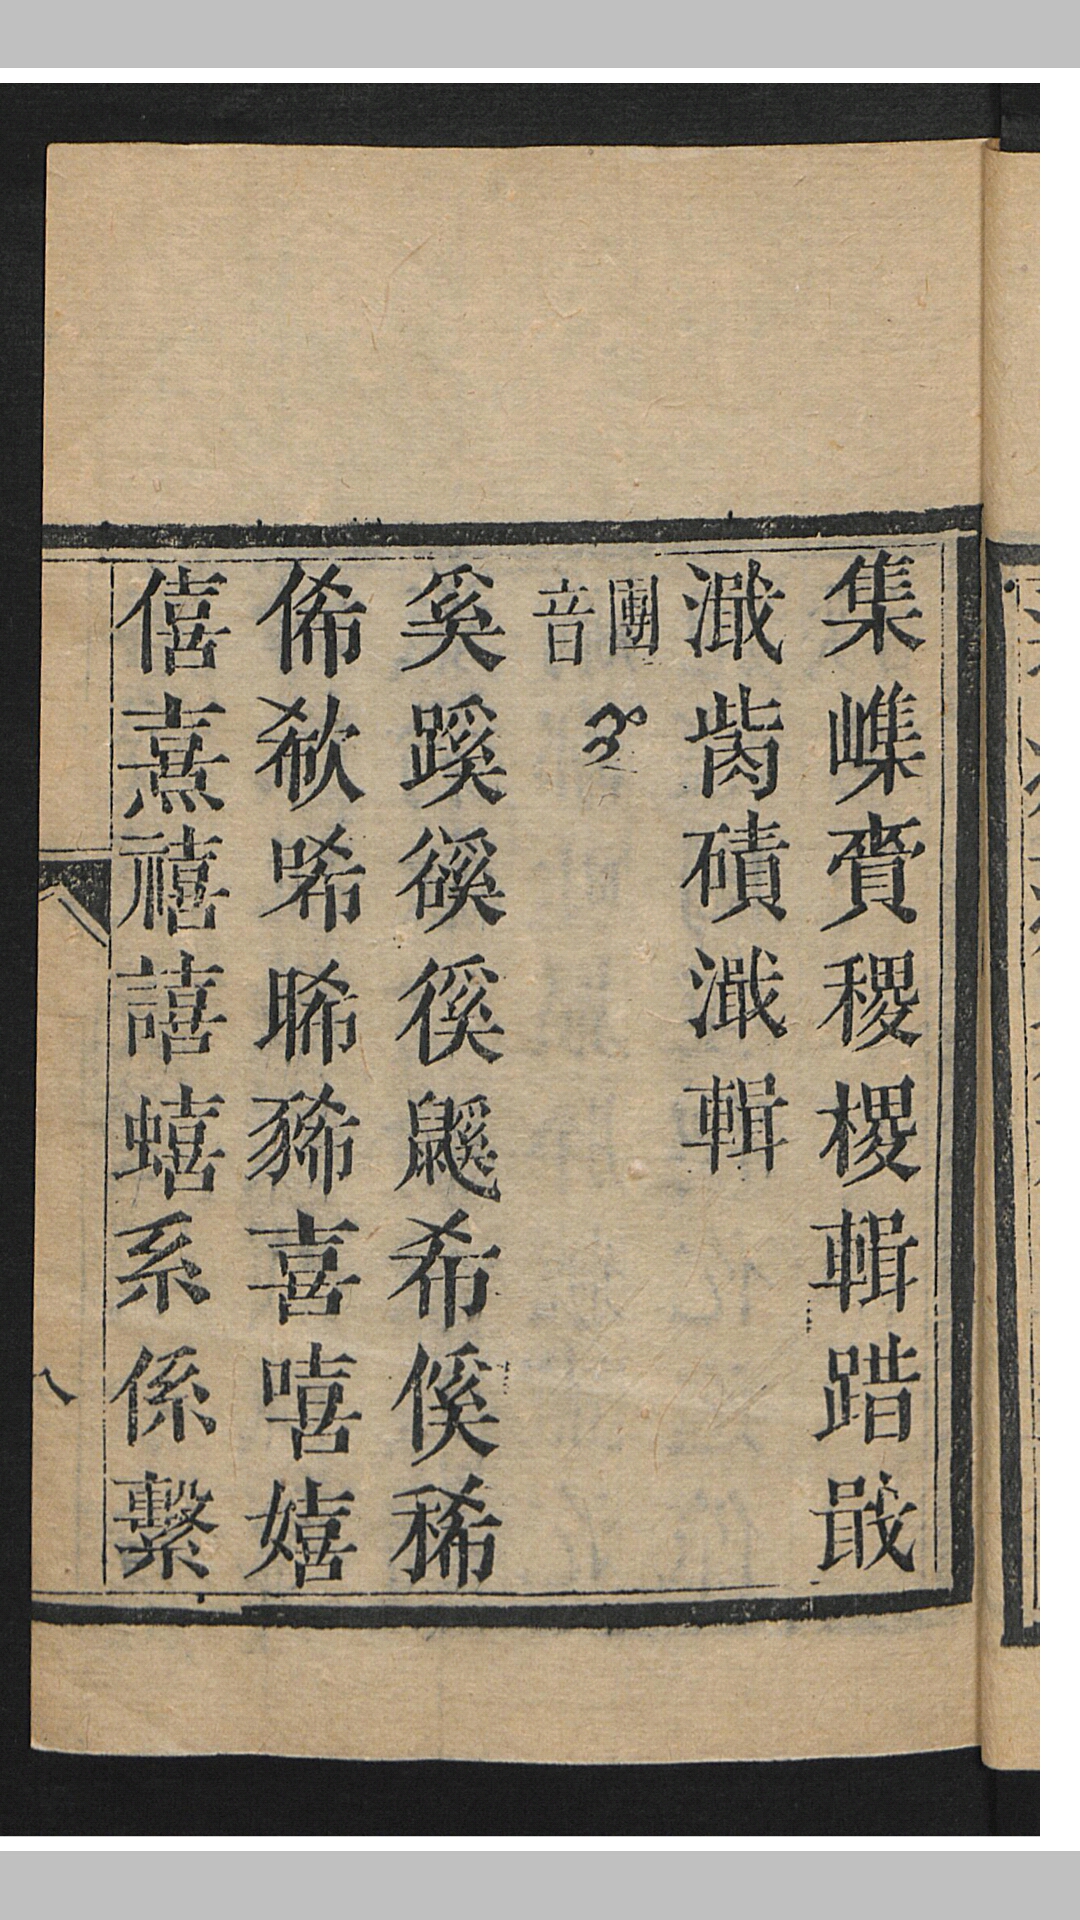 集㠍賫稷㮨輯踖戢
濈胔磧濈輯
團音
奚蹊豀徯鼷希傒稀
俙欷唏睎豨喜嘻嬉
僖熹禧譆蟢系係繫
八